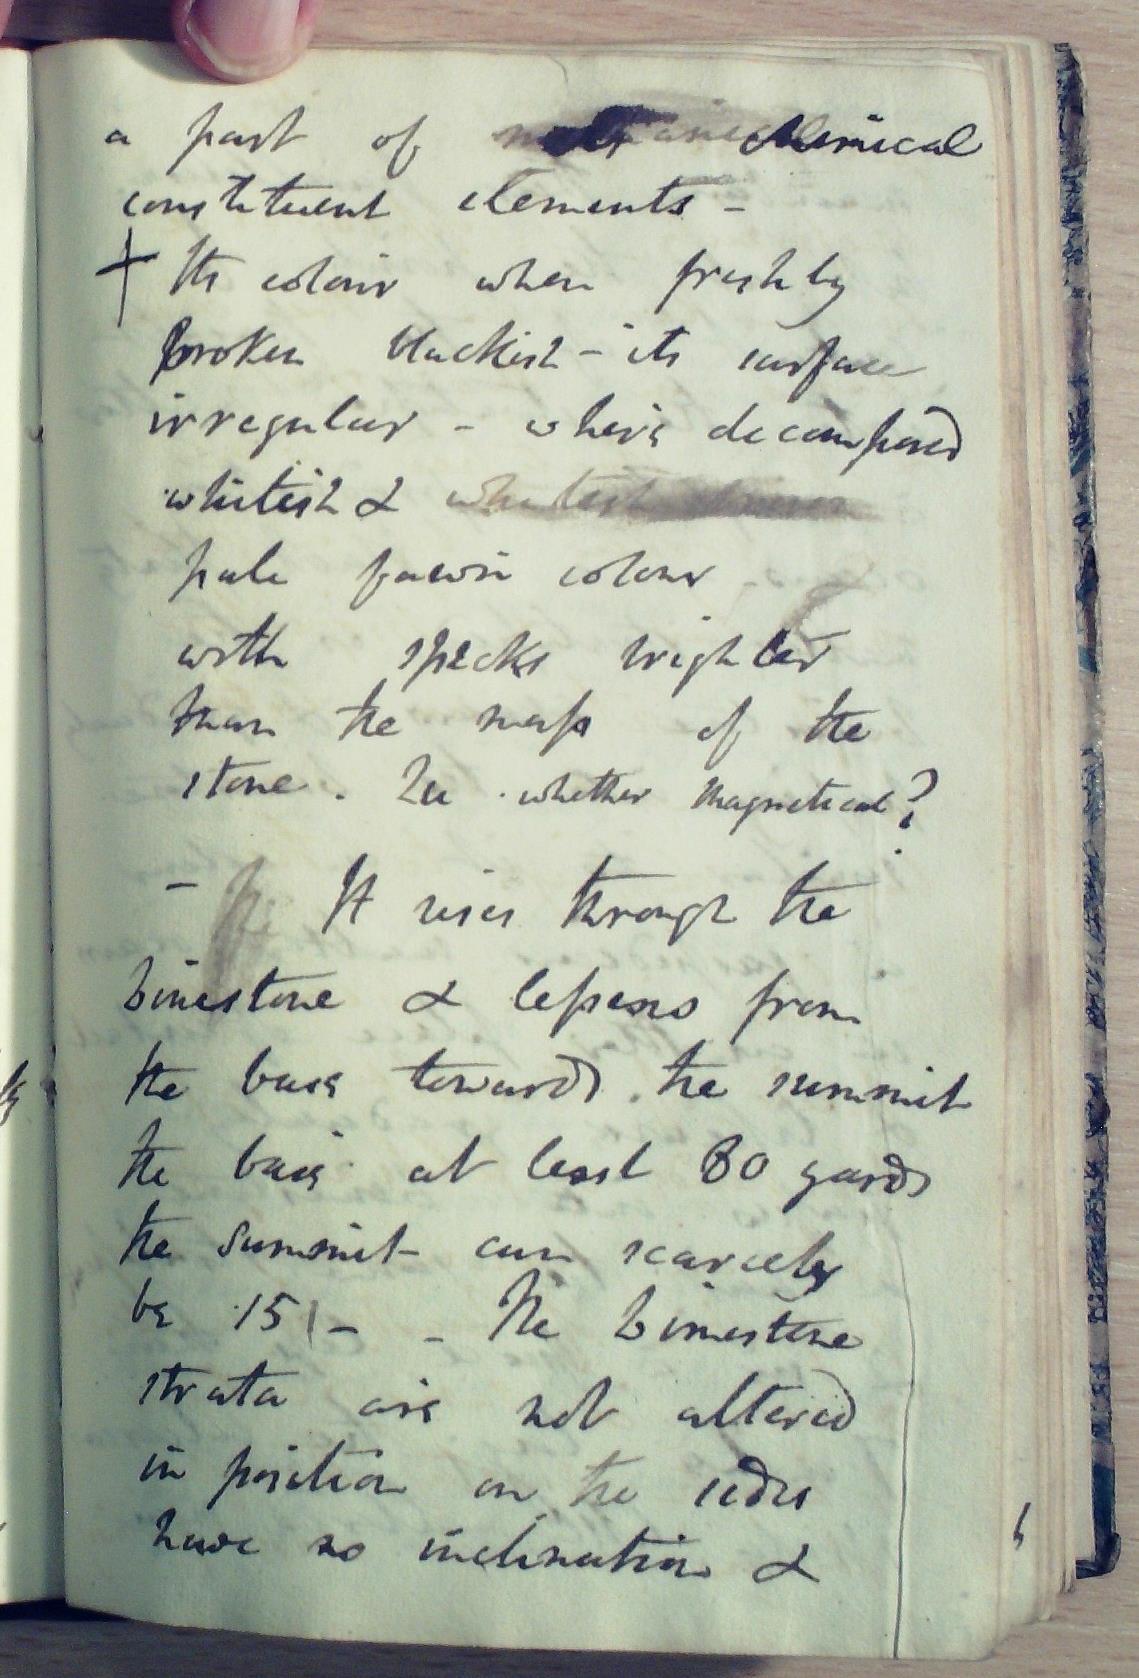 a part of chemical
constituent elements -
+ Its colour when freshly
broken blackish - its surface
irregular - where decomposed
whitish & whitish
pale fawn colour
with specks brighter
than the mass of the
stone. Qu whether magnetical?
- The It rises through the
Limestone & lessens from
the base towards the summit
the base at least 80 yards
the summit can scarcely
be 15 - - The Limestone
strata are not altered
in position on the sides
have no inclination &